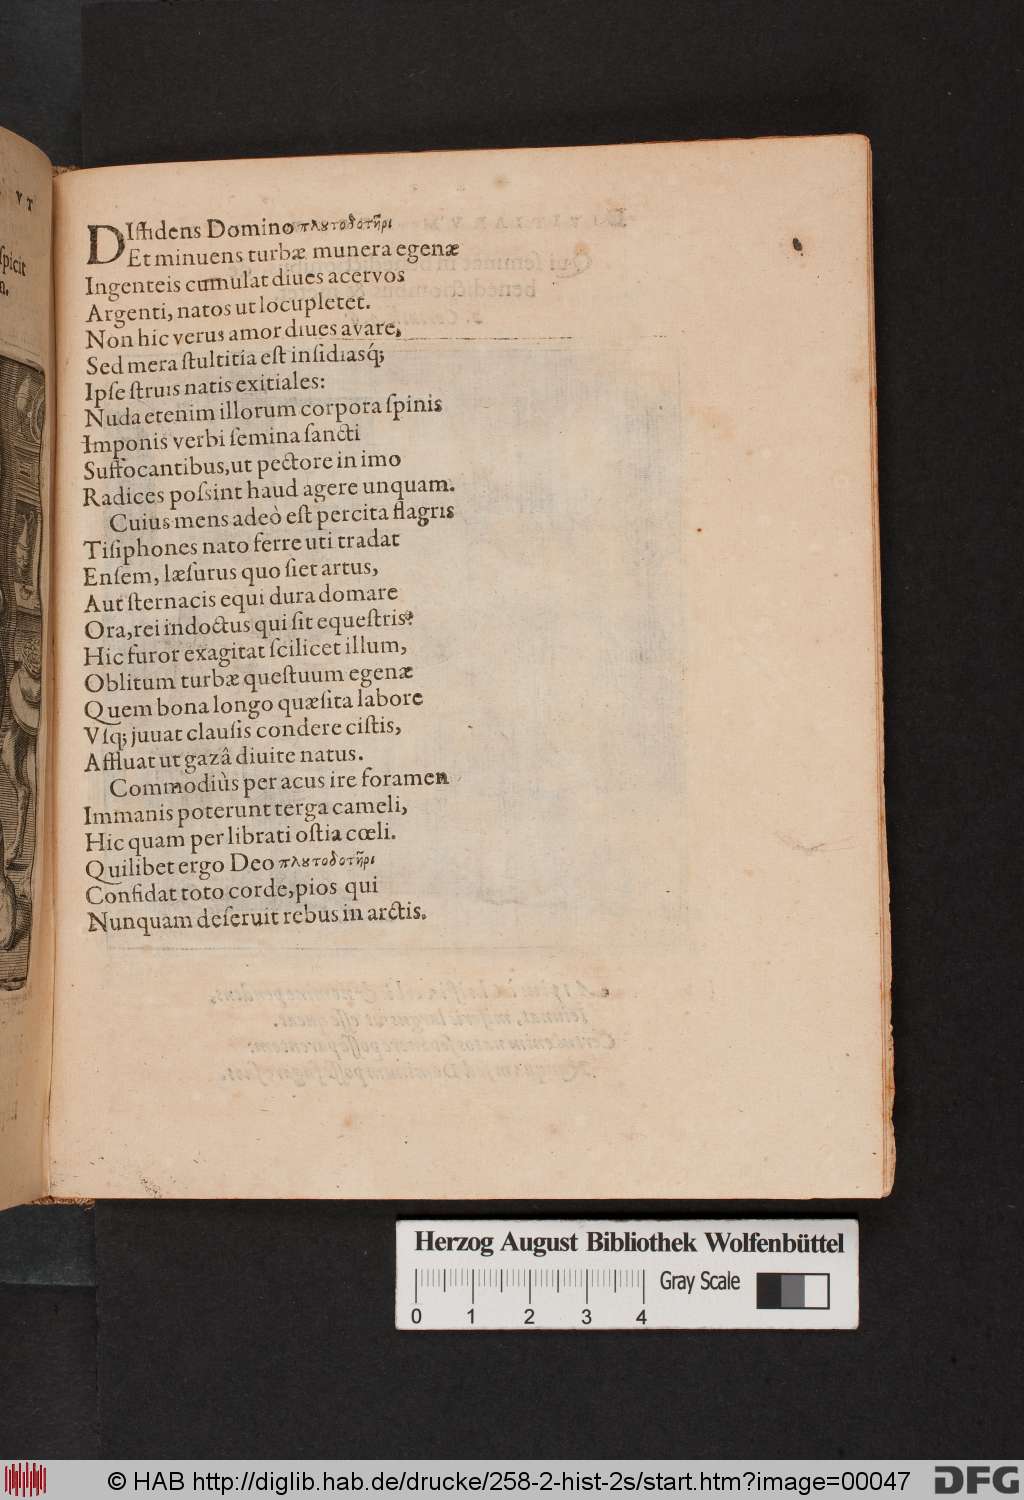 VT
ſpicit
n.
DIffidens Domino πλȣτοδοτῆρι
Et minuens turbæ munera egenæ
Ingenteis cumulat diues acervos
Argenti, natos ut locupletet.
Non hic verus amor diues avare,
Sed mera ſtultitia eſt inſidiasq́;
Ipſe ſtruis natis exitiales:
Nuda etenim illorum corpora ſpinis
Imponis verbi ſemina ſancti
Suffocantibus, ut pectore in imo
Radices poſsint haud agere unquam.
Cuius mens adeò eſt percita flagris
Tiſiphones nato ferre uti tradat
Enſem, læſurus quo ſiet artus,
Aut ſternacis equi dura domare
Ora, rei indoctus qui ſit equeſtris?
Hic furor exagitat ſcilicet illum,
Oblitum turbæ queſtuum egenæ
Quem bona longo quæſita labore
Vſq; juuat clauſis condere ciſtis,
Affluat ut gazâ diuite natus.
Commodiùs per acus ire foramen
Immanis poterunt terga cameli,
Hic quam per librati oſtia cœli.
Quilibet ergo Deo πλȣτοδοτῆρι
Confidat toto corde, pios qui
Nunquam deſeruit rebus in arctis.
Herzog August Bibliothek Wolfenbüttel
Gray Scale
0 1 2 3 4
© HAB http://diglib.hab.de/drucke/258-2-hist-2s/start.htm?image=00047
DFG